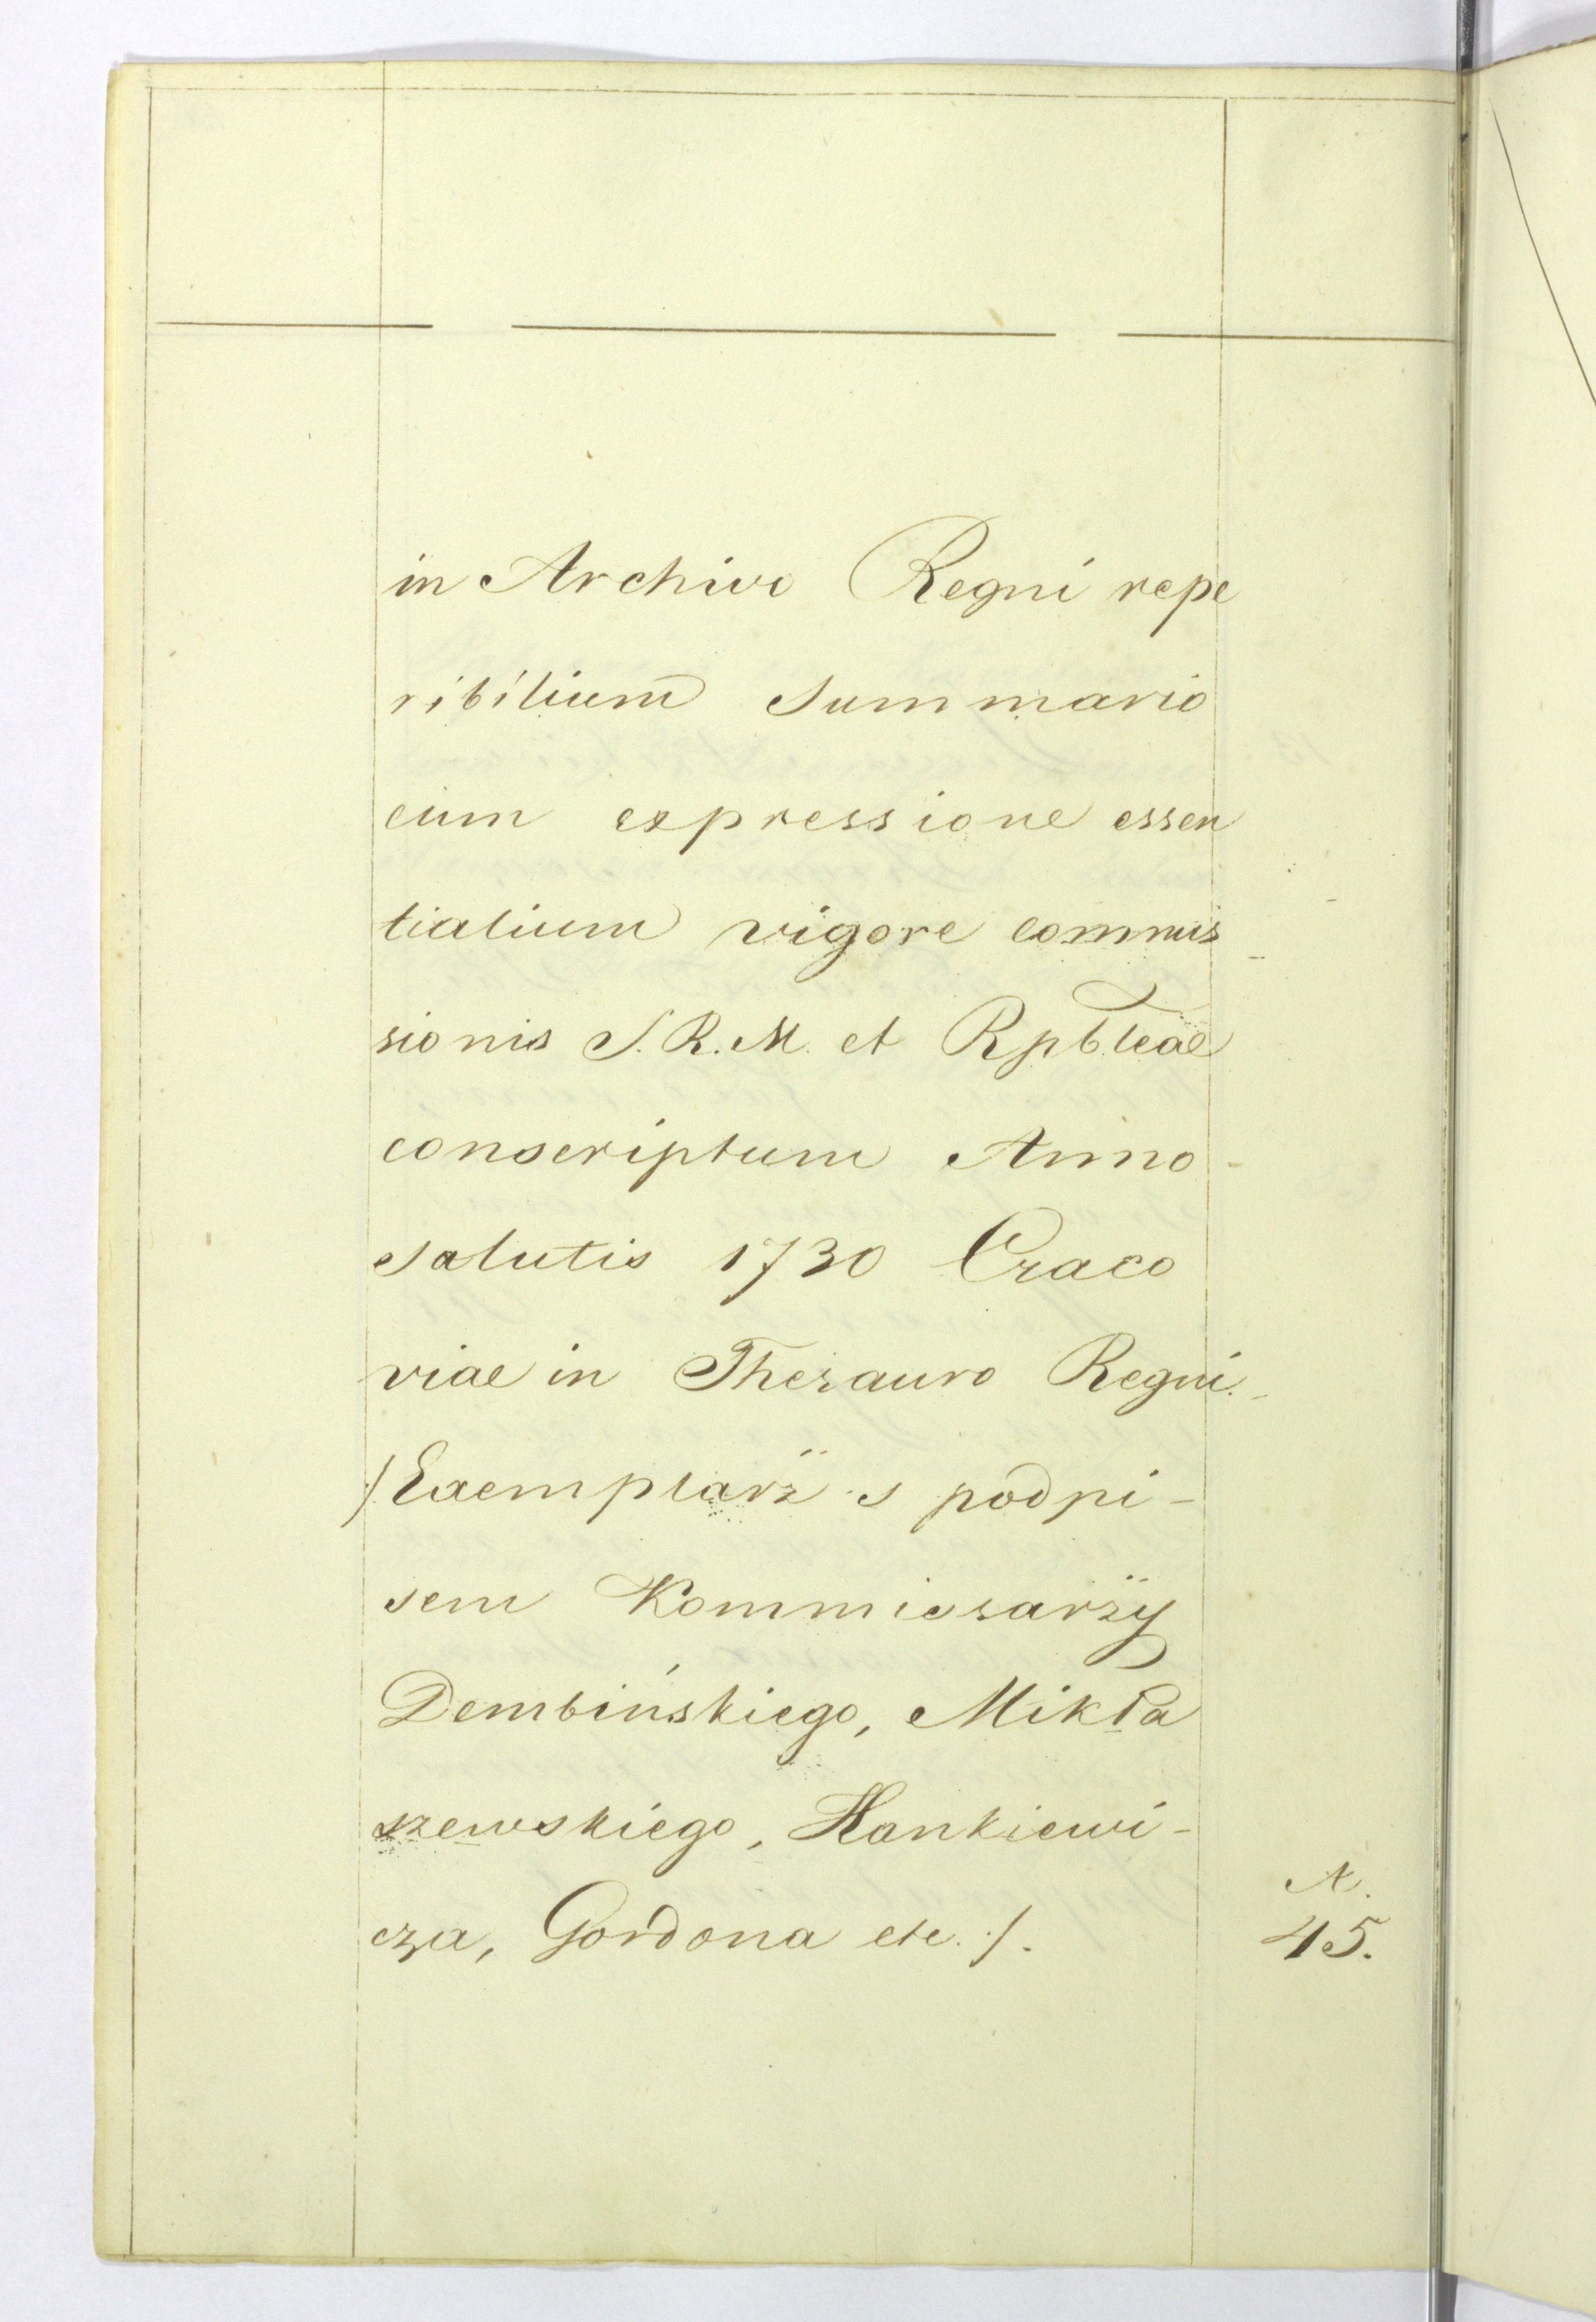 in Archivo Regni repe
ribilium Summario
cum expressione essen
tialium vigore commis
sionis S. R. M. et Rpblcae
conscriptum Anno -
salutis 1730 Craco
viae in Thesauro Regni. -
/Exemplarz s podpi-
sem Kommissarzy
Dembińskiego, Mikła
szewskiego, Hankiewi-
cza, Gordona etc. /.
N.
45.